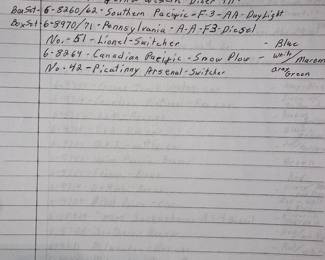 Box Set - 6-8260/62 - Southern Pacific - F-3 - A A - Daylight
Box Set - 6-8970/71 - Pennsylvania - A-A-F3-Diesel
No. - 51 - Lionel - Switcher - Blue
6-8264 - Canadian Pacific - Snow Plow - White/Maroon
No. 42 - Picatinny Arsenal - Switcher Gray Green